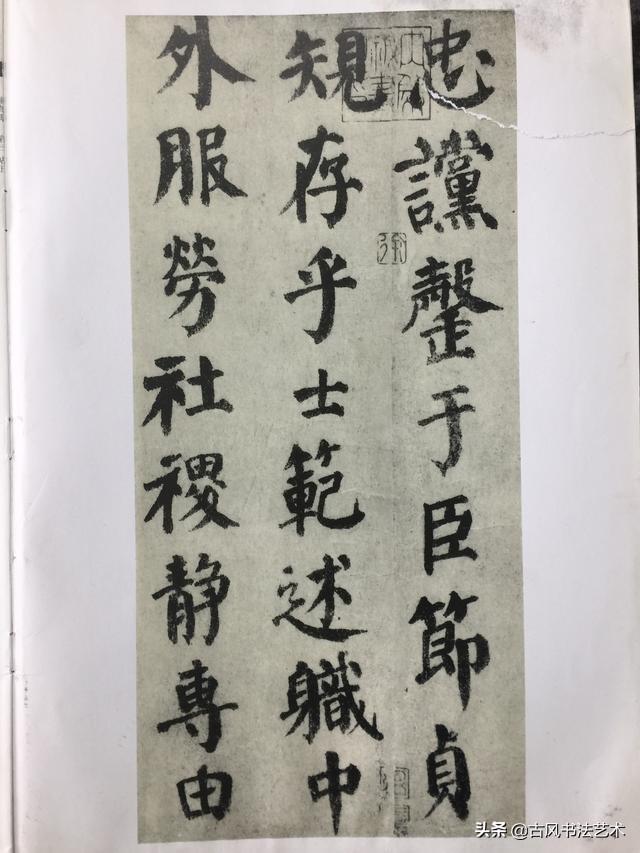 忠讜罄于臣節貞
規存乎士範述職中
外服勞社稷静專由
头条 @古风书法艺术